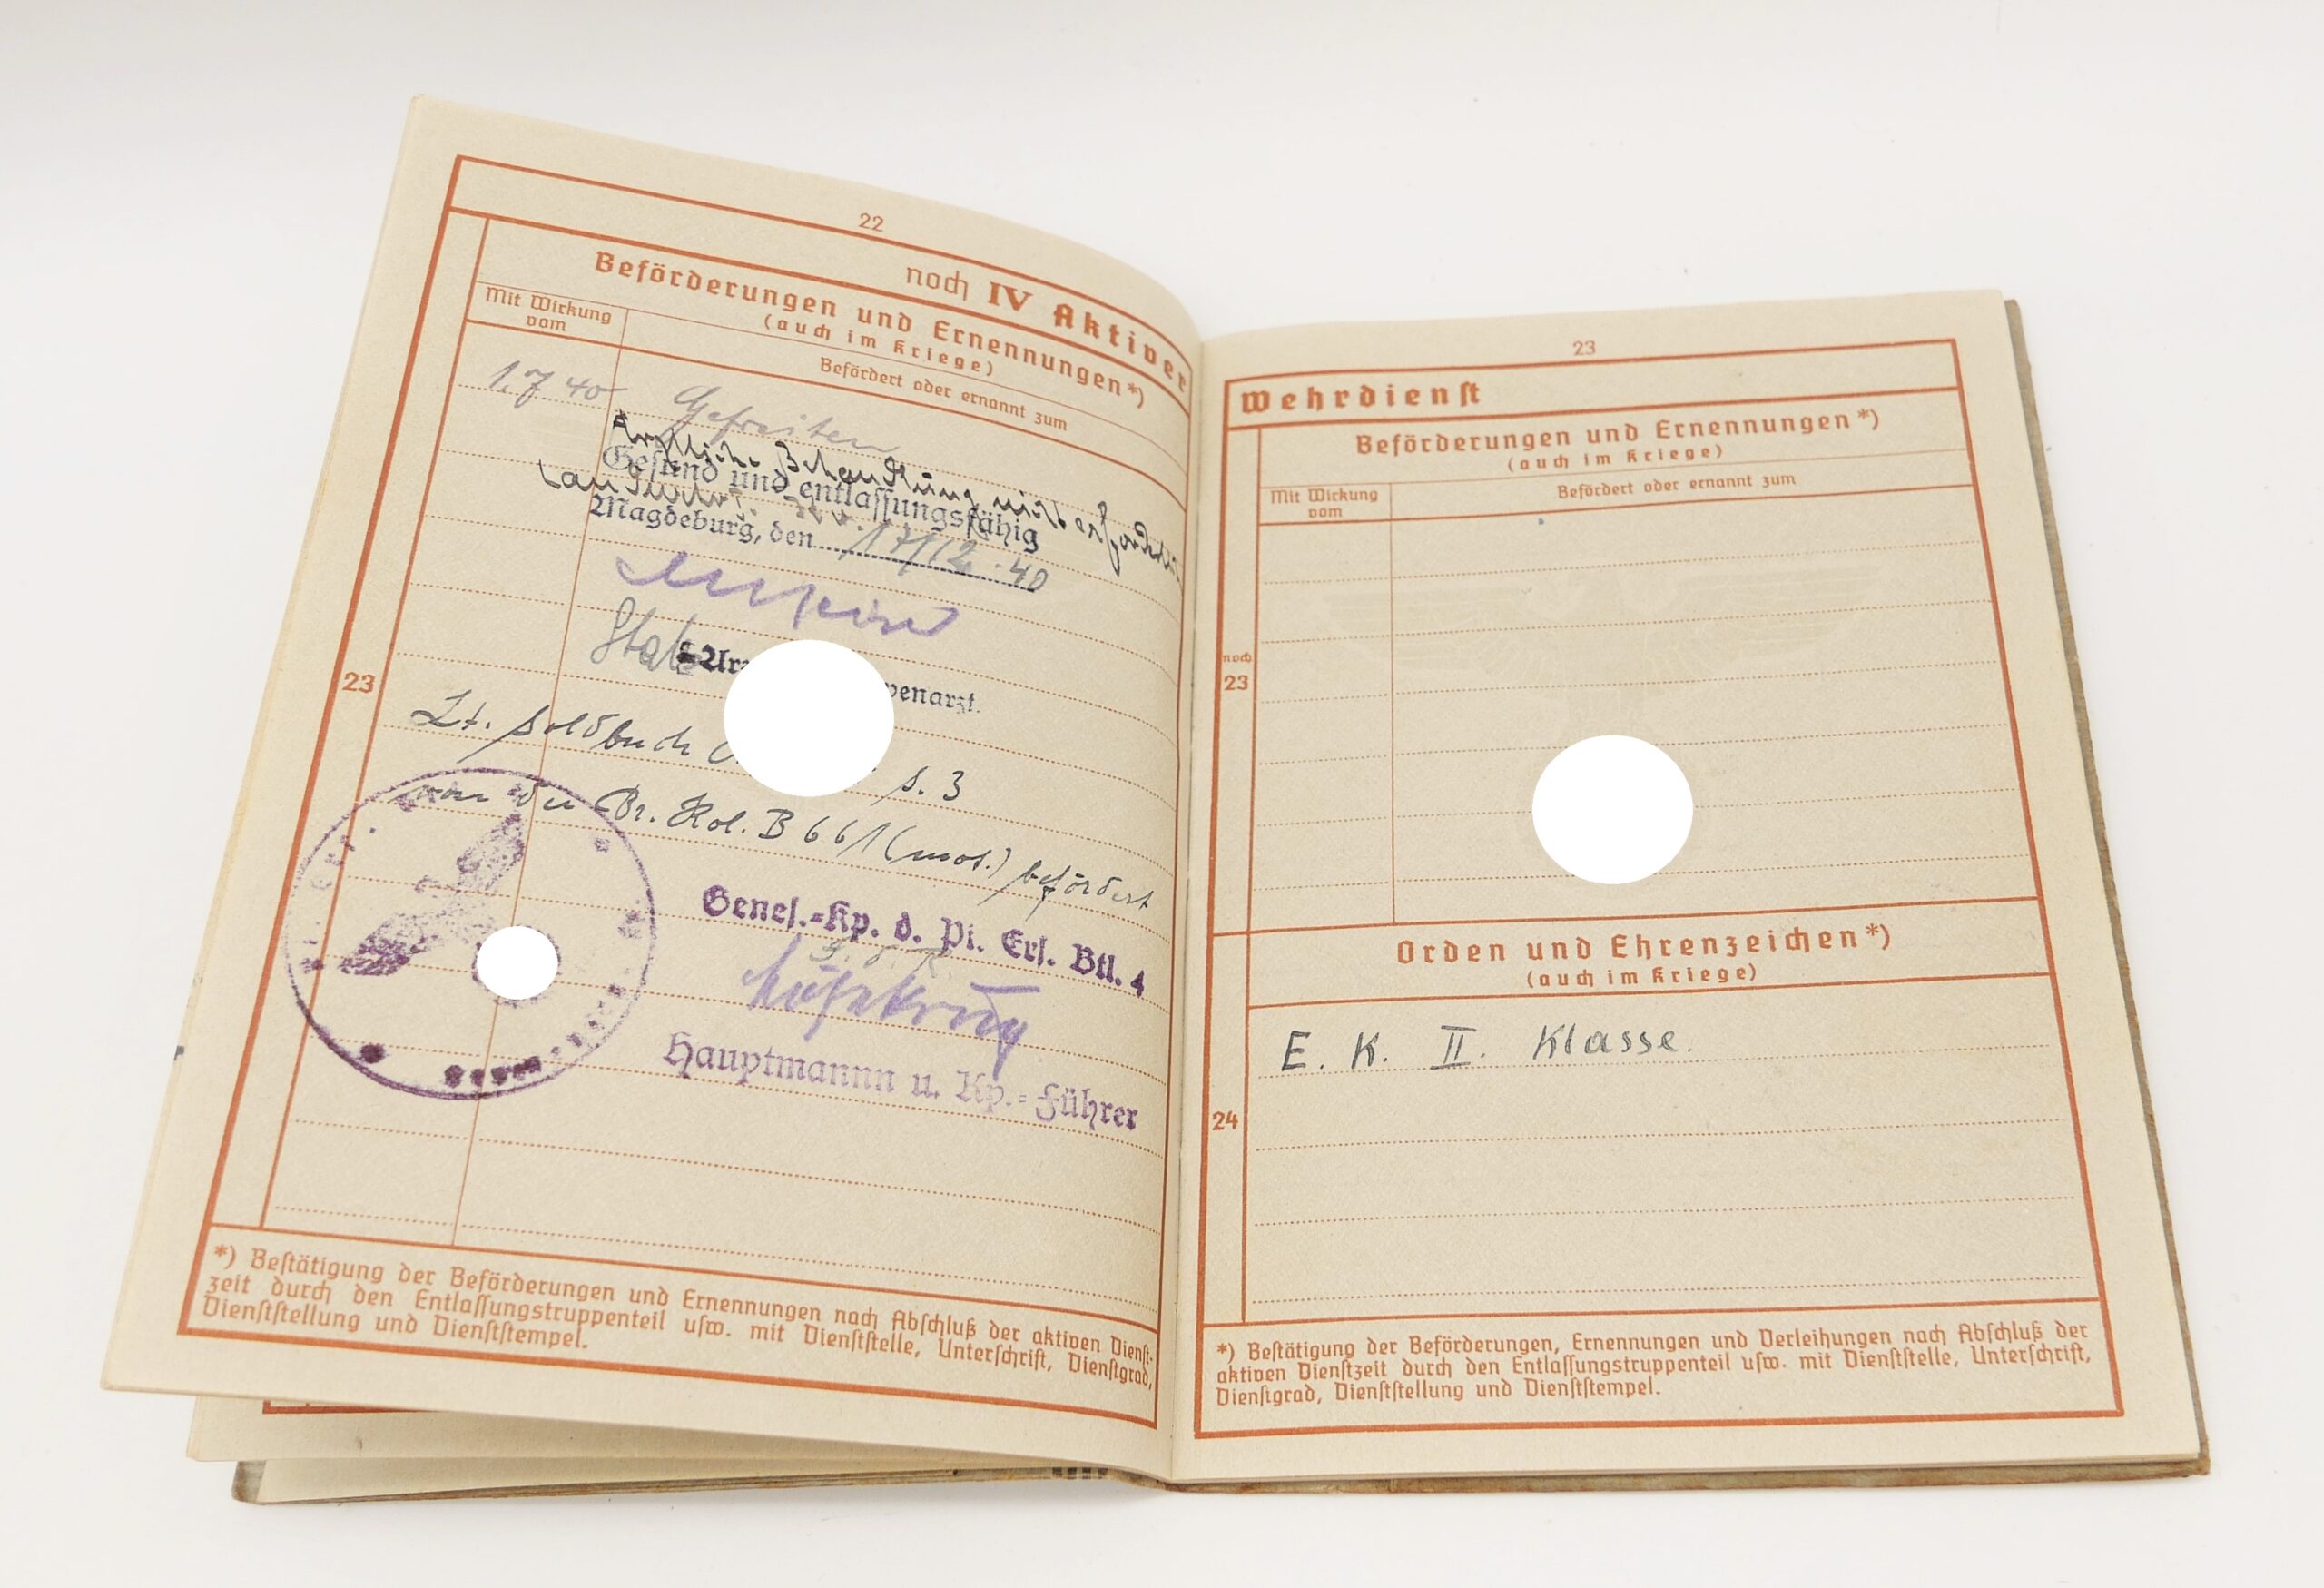 22
noch IV Aktiver
Beförderungen und Ernennungen*)
(auch im Kriege)
Mit Wirkung
vom
Befördert oder ernannt zum
1.7 40 Gefreiten
Ärztliche Behandlung nicht erforderlich
Gesund und entlassungsfähig
Magdeburg, den 17/12.40
Stabs Arz penarzt.
23
Lt. Soldbuch S. 3
von der Br. Kol. B 661 (mot.) befördert
Genes.-Kp. d. Pi. Ers. Btl. 4
Hauptmannn u. Kp.-Führer
*) Bestätigung der Beförderungen und Ernennungen nach Abschluß der aktiven Dienst-
zeit durch den Entlassungstruppenteil usw. mit Dienststelle, Unterschrift, Dienstgrad,
Dienststellung und Dienststempel.
23
Wehrdienst
Beförderungen und Ernennungen*)
(auch im Kriege)
Mit Wirkung
vom
Befördert oder ernannt zum
noch
23
Orden und Ehrenzeichen*)
(auch im Kriege)
E. K. II. Klasse.
24
*) Bestätigung der Beförderungen, Ernennungen und Verleihungen nach Abschluß der
aktiven Dienstzeit durch den Entlassungstruppenteil usw. mit Dienststelle, Unterschrift,
Dienstgrad, Dienststellung und Dienststempel.